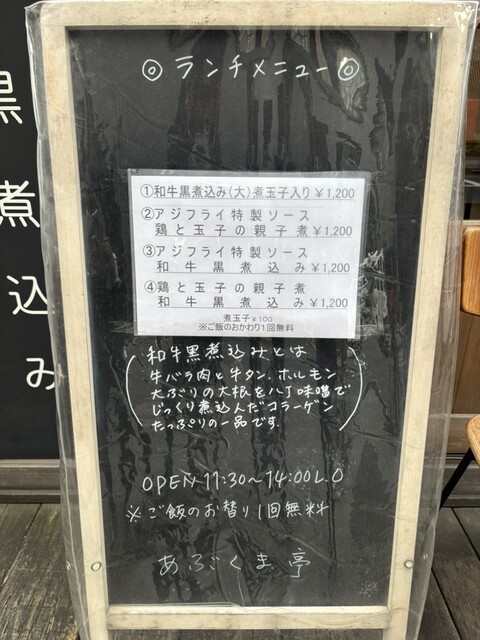 ◎ランチメニュー◎
①和牛黒煮込み(大)煮玉子入り¥1,200
②アジフライ特製ソース
鶏と玉子の親子煮¥1,200
③アジフライ特製ソース
和牛黒煮込み¥1,200
④鶏と玉子の親子煮
和牛黒煮込み¥1,200
煮玉子¥100
※ご飯のおかわり1回無料
和牛黒煮込みとは
牛バラ肉と牛タン、ホルモン
大ぶりの大根を八丁味噌で
じっくり煮込んだコラーゲン
たっぷりの一品です.
OPEN 11:30〜14:00L.O
※ご飯のお替り1回無料
あぶくま亭
黒煮込み